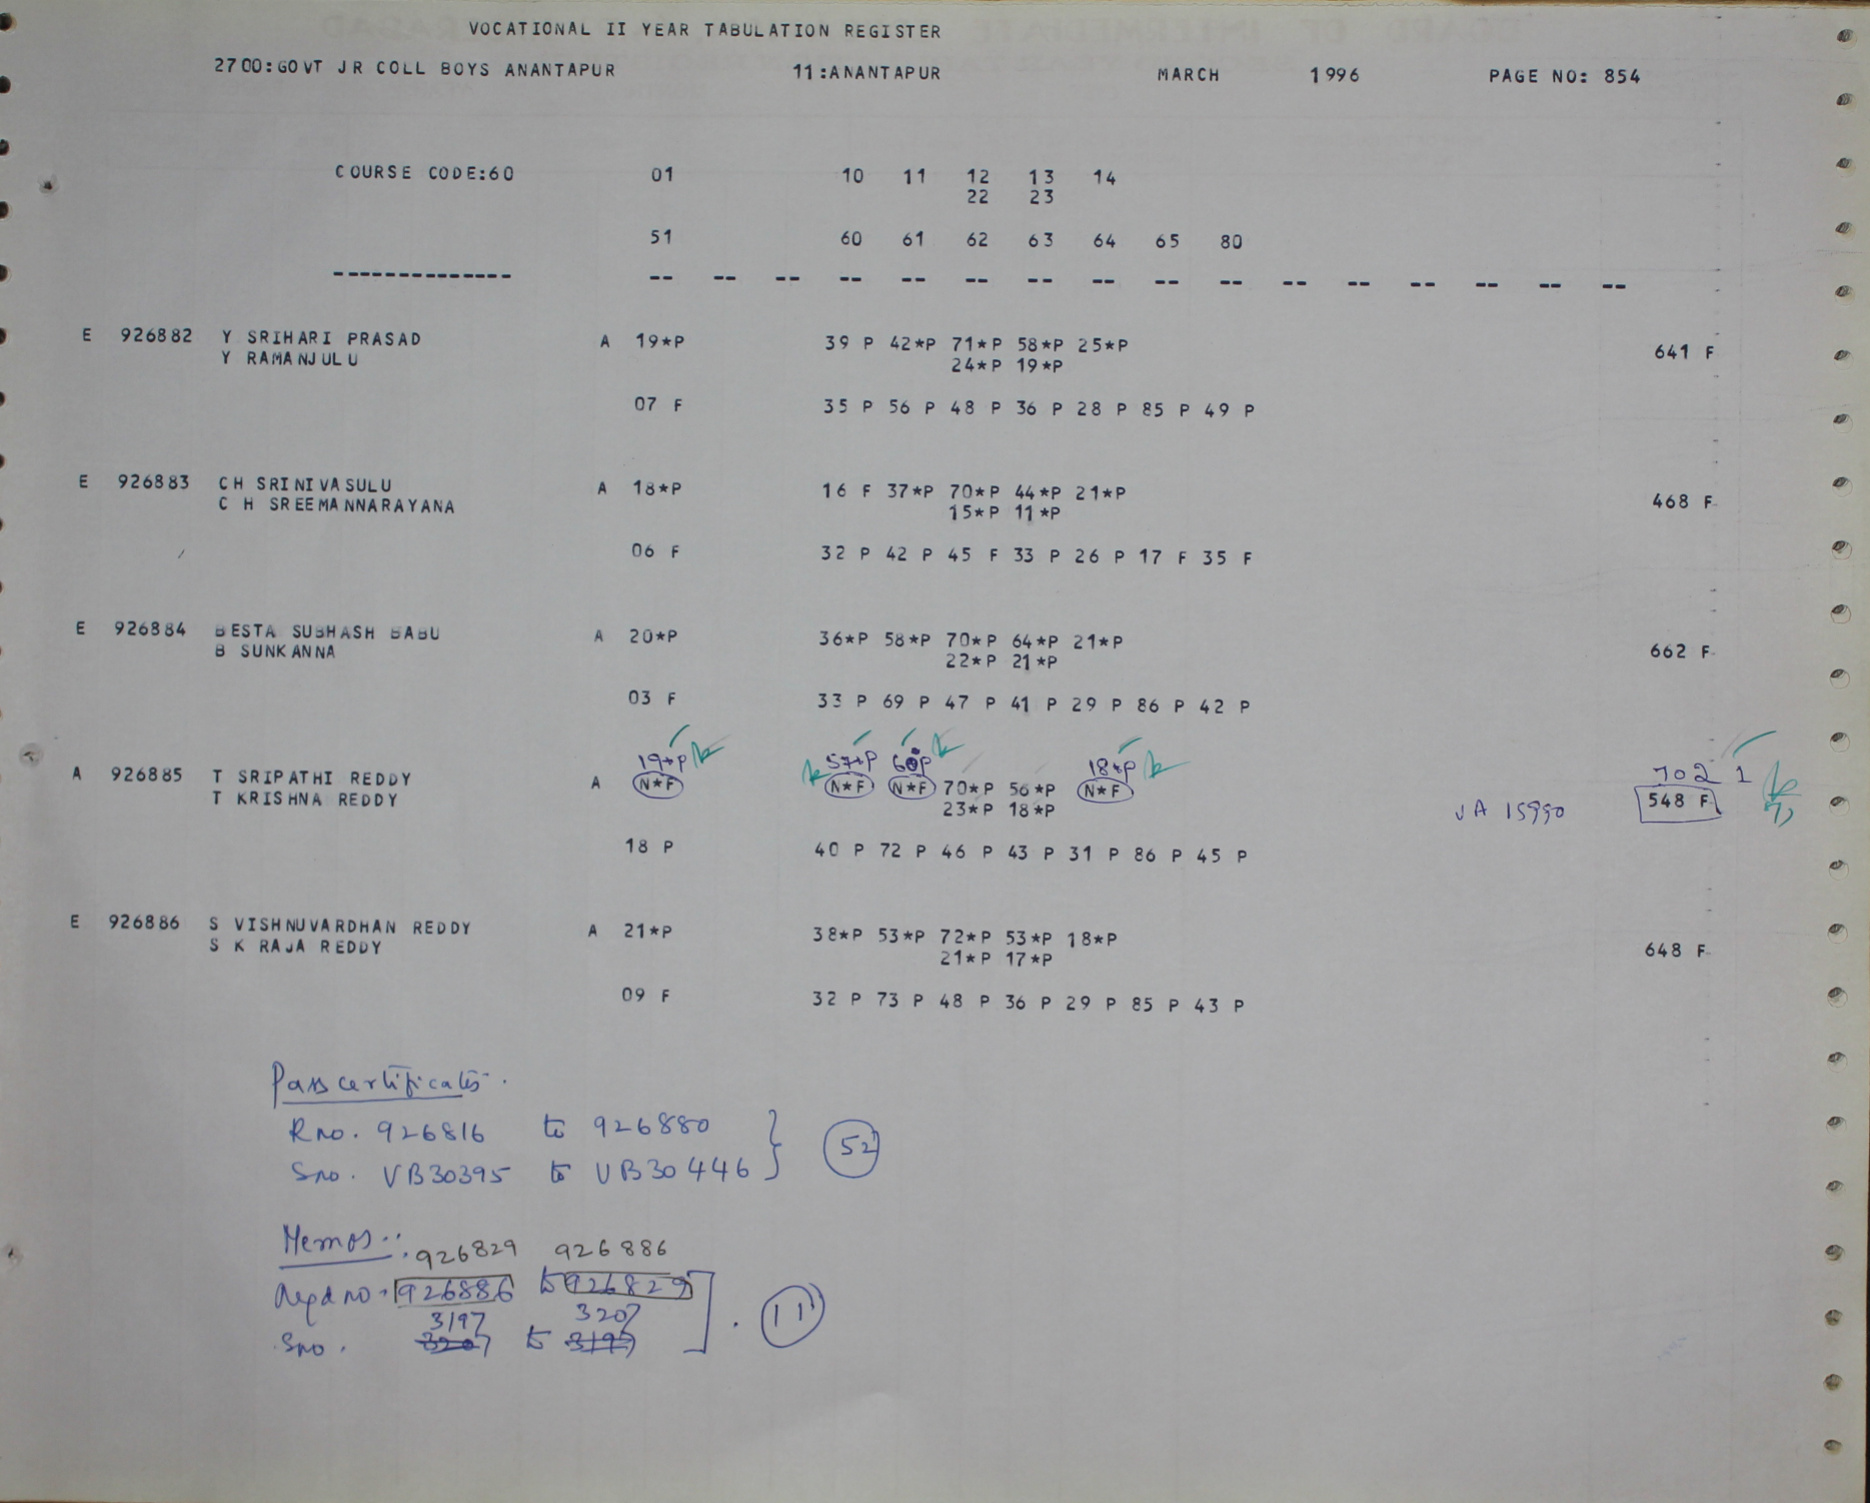 VOCATIONAL II YEAR TABULATION REGISTER
2700:GOVT JR COLL BOYS ANANTAPUR 11:ANANTAPUR MARCH 1996 PAGE NO: 854
COURSE CODE:60 01 10 11 12 13 14
22 23
51 60 61 62 63 64 65 80
-------------- -- -- -- -- -- -- -- -- -- -- -- -- -- -- -- --
E 926882 Y SRIHARI PRASAD A 19*P 39 P 42*P 71*P 58*P 25*P
Y RAMANJULU 24*P 19*P 641 F
07 F 35 P 56 P 48 P 36 P 28 P 85 P 49 P
E 926883 CH SRINIVASULU A 18*P 16 F 37*P 70*P 44*P 21*P
C H SREEMANNARAYANA 15*P 11*P 468 F
06 F 32 P 42 P 45 F 33 P 26 P 17 F 35 F
E 926884 BESTA SUBHASH BABU A 20*P 36*P 58*P 70*P 64*P 21*P
B SUNKANNA 22*P 21*P 662 F
03 F 33 P 69 P 47 P 41 P 29 P 86 P 42 P
19*P 57*P 60P 18*P 702 1
A 926885 T SRIPATHI REDDY A N*F N*F N*F 70*P 56*P N*F
T KRISHNA REDDY 23*P 18*P VA 15990 548 F
18 P 40 P 72 P 46 P 43 P 31 P 86 P 45 P
E 926886 S VISHNUVARDHAN REDDY A 21*P 38*P 53*P 72*P 53*P 18*P
S K RAJA REDDY 21*P 17*P 648 F
09 F 32 P 73 P 48 P 36 P 29 P 85 P 43 P
Pass certificates.
R no. 926816 to 926880 52
Sno. VB30395 to VB30446
Memos:
926829 926886
Regd no. 926886 to 926829 11
3197 3207
Sno. 3207 to 3197